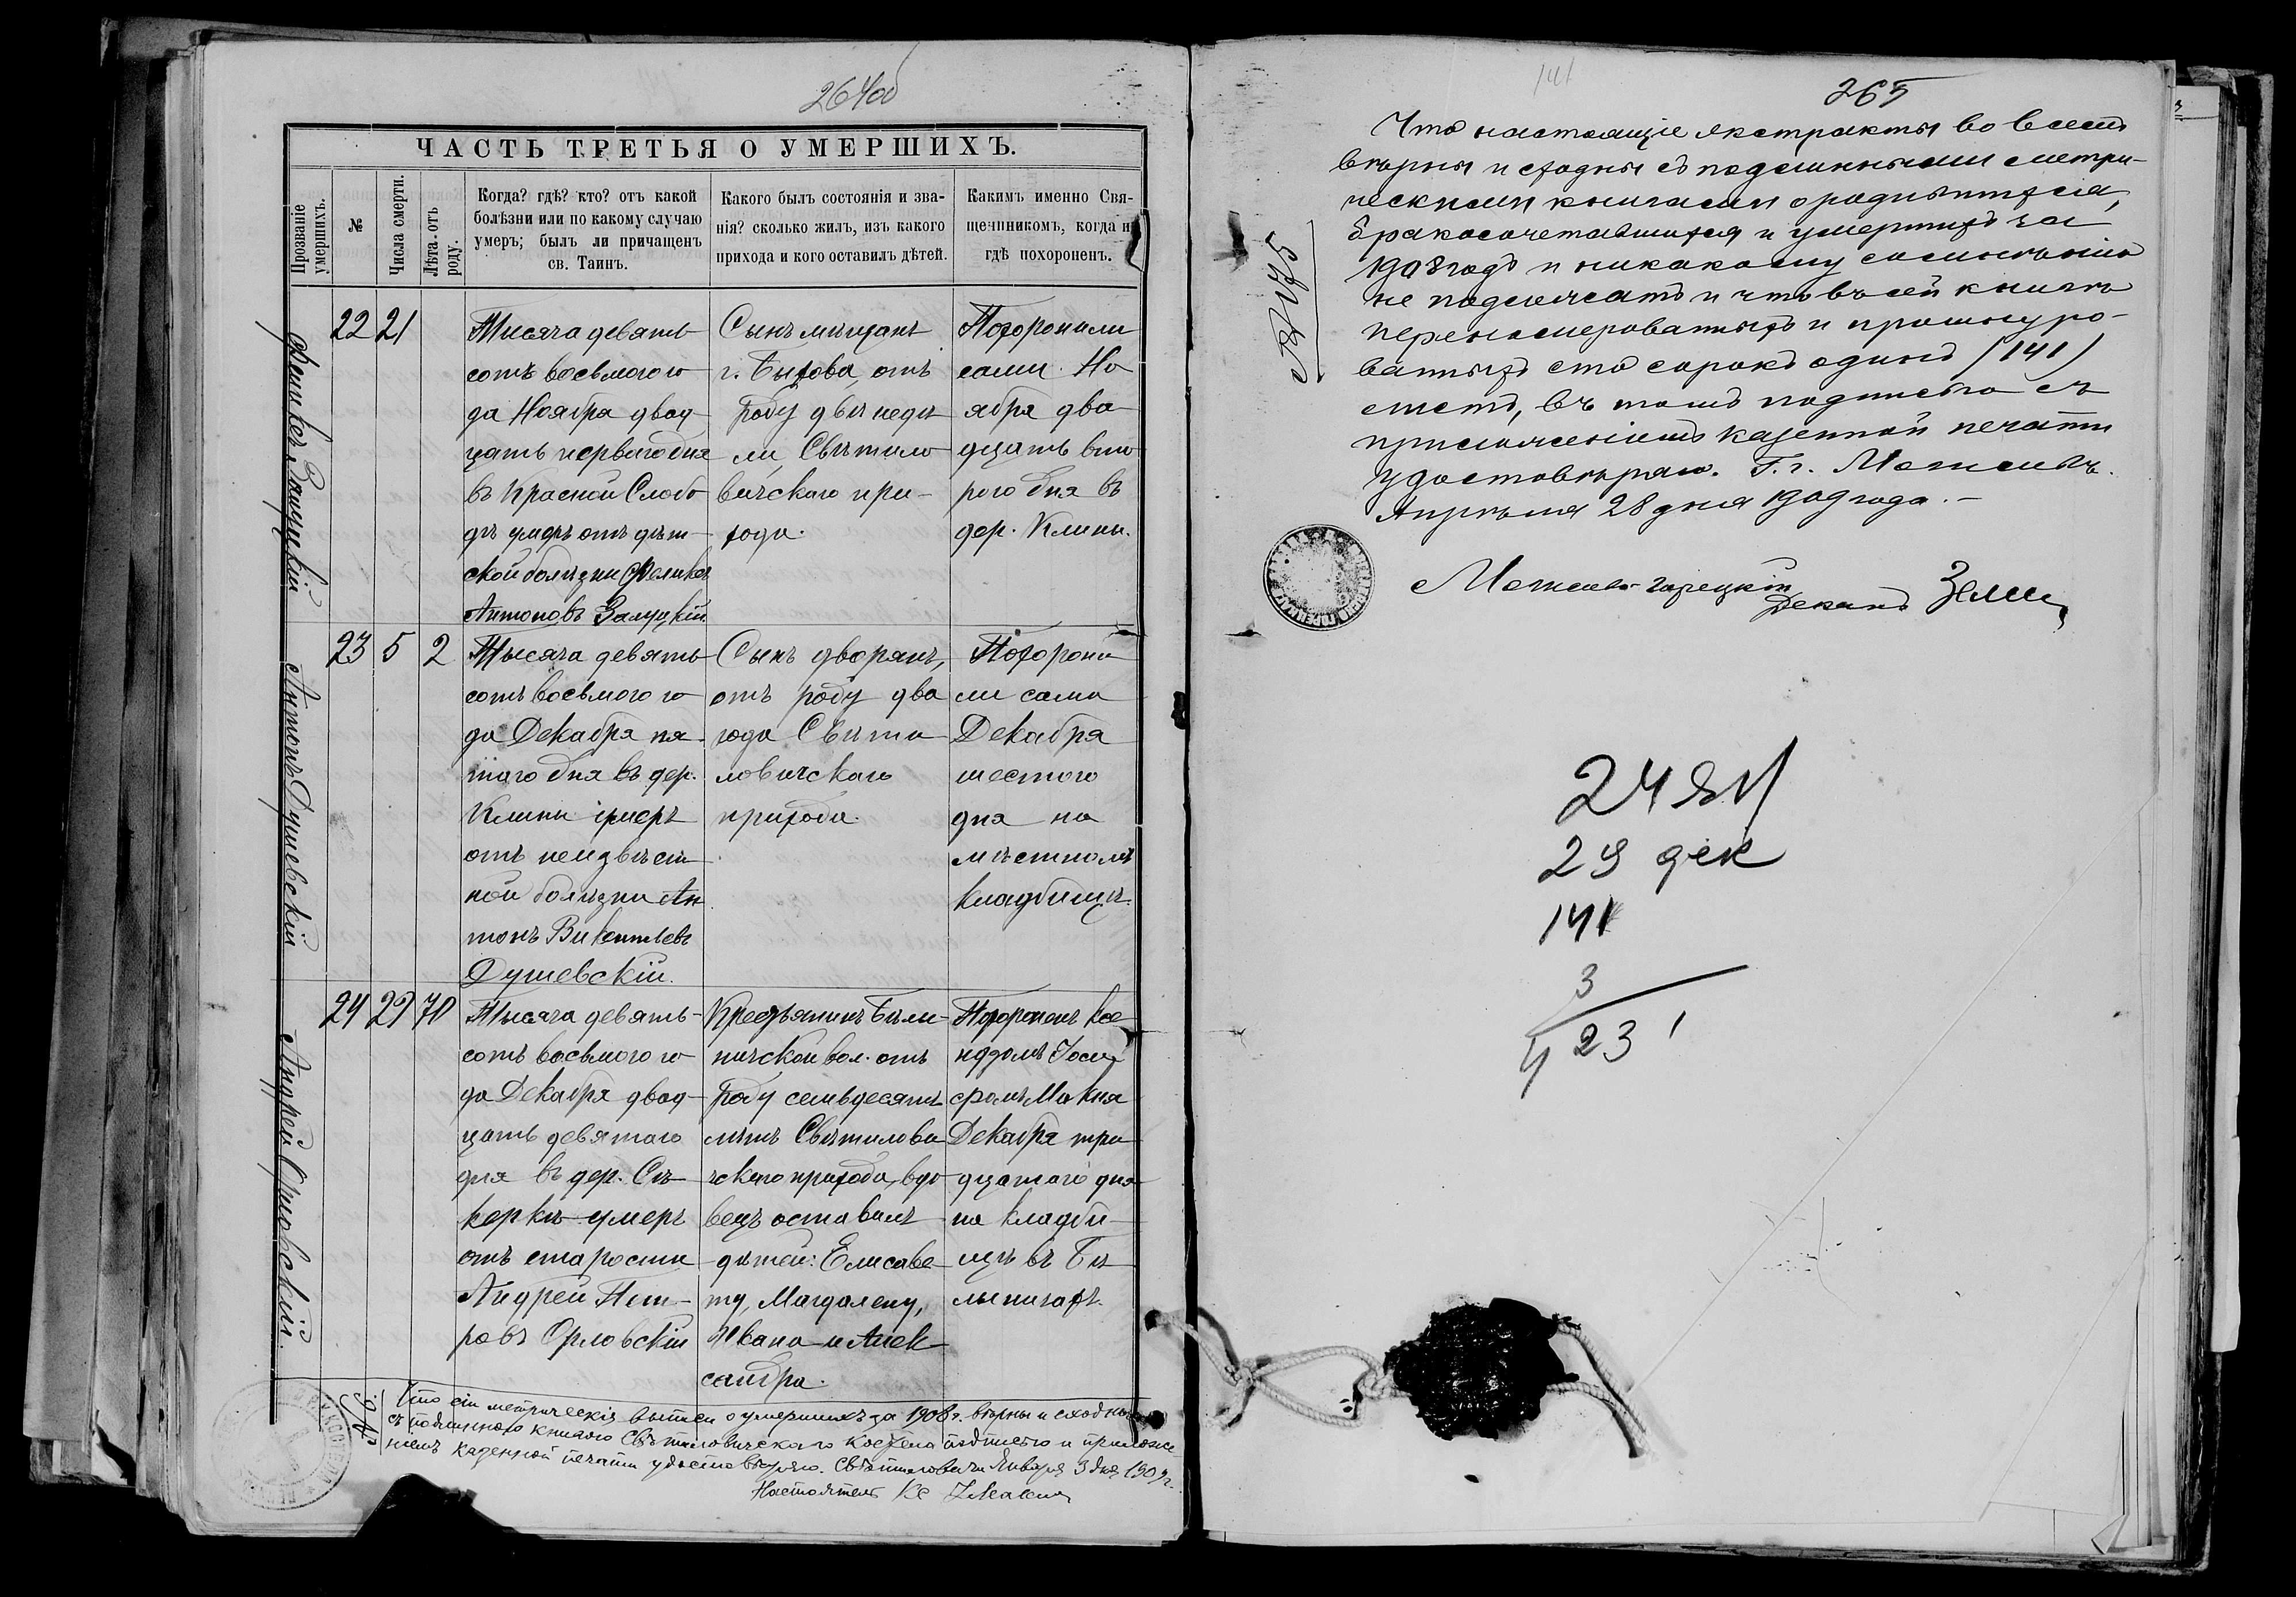 264об
ЧАСТЬ ТРЕТЬЯ О УМЕРШИХЪ.
Прозваніе умершихъ.
№
Числа смерти.
Лѣта отъ роду.
Когда? гдѣ? кто? отъ какой
болѣзни или по какому случаю
умеръ; былъ ли причащенъ
св. Таинъ.
Какого былъ состоянія и зва-
нія? сколько жилъ, изъ какого
прихода и кого оставилъ дѣтей.
Какимъ именно Свя-
щенникомъ, когда и
гдѣ похороненъ.
Феликсъ Залуцкій
22
21
Тысяча девять
сотъ восьмого го
да Ноября двад
цать перваго дня
въ Красной Слобо
дѣ умеръ отъ дѣт-
ской болѣзни Феликсъ
Антоновъ Залуцкій.
Сынъ мѣщанъ
г. Быхова, отъ
роду двѣ недѣ
ли, Свѣтило
вичскаго при-
хода.
Похоронили
сами. Но
ября два
дцать вто
рого дня въ
дер. Клины.
Антонъ Душевскій
23
5
2
Тысяча девять
сотъ восьмого го
да Декабря пя
таго дня въ дер.
Клины умеръ
отъ неизвѣст
ной болѣзни Ан
тонъ Викентьевъ
Душевскій.
Сынъ дворянъ,
отъ роду два
года Свѣти
ловичскаго
прихода.
Похорони
ли сами
Декабря
шестого
дня на
мѣстномъ
кладбищѣ.
Андрей Орловскій.
24
29
70
Тысяча девять-
сотъ восьмого го
да Декабря двад-
цать девятаго
дня въ дер. Съ
керкѣ умеръ
отъ старости
Андрей Пет-
ровъ Орловскій
Крестьянинъ Бѣлы-
ничской вол. отъ
роду семьдесятъ
лѣтъ Свѣтилови
чскаго прихода, вдо
вецъ оставилъ
дѣтей: Елисаве
ту, Магдалену,
Ивана и Алек
сандра.
Похороненъ Ксе
ндзомъ Іоси
фомъ Макня
Декабря три
дцатаго дня
на кладби-
щѣ въ Бѣ
лыничахъ.
№ 2.
Что сіи метрическія выписи о умершихъ за 1908 г. вѣрны и сходны
съ подлинною книгою Свѣтиловичскаго Костела подписью и приложе
ніемъ казенной печати удостовѣряю. Свѣтиловичи Января 3 дня 1909 г.
Настоятель Кс
141
265
№ 175
Что настоящіе экстракты во всемъ
вѣрны и сходны съ подлинными метри-
ческими книгами о родившихся,
бракосочетавшихся и умершихъ за
1908 годъ и никакому сомнѣнію
не подлежатъ и что въ сей книгѣ
перенумерованныхъ и прошнуро-
ванныхъ сто сорокъ одинъ (141)
листъ, въ томъ подписью съ
приложеніемъ казенной печати
удостовѣряю. Г. г. Могилевъ.
Апрѣля 28 дня 1909 года.-
Могилево-Горецкій
Деканъ
24
29 дек
141
3
423